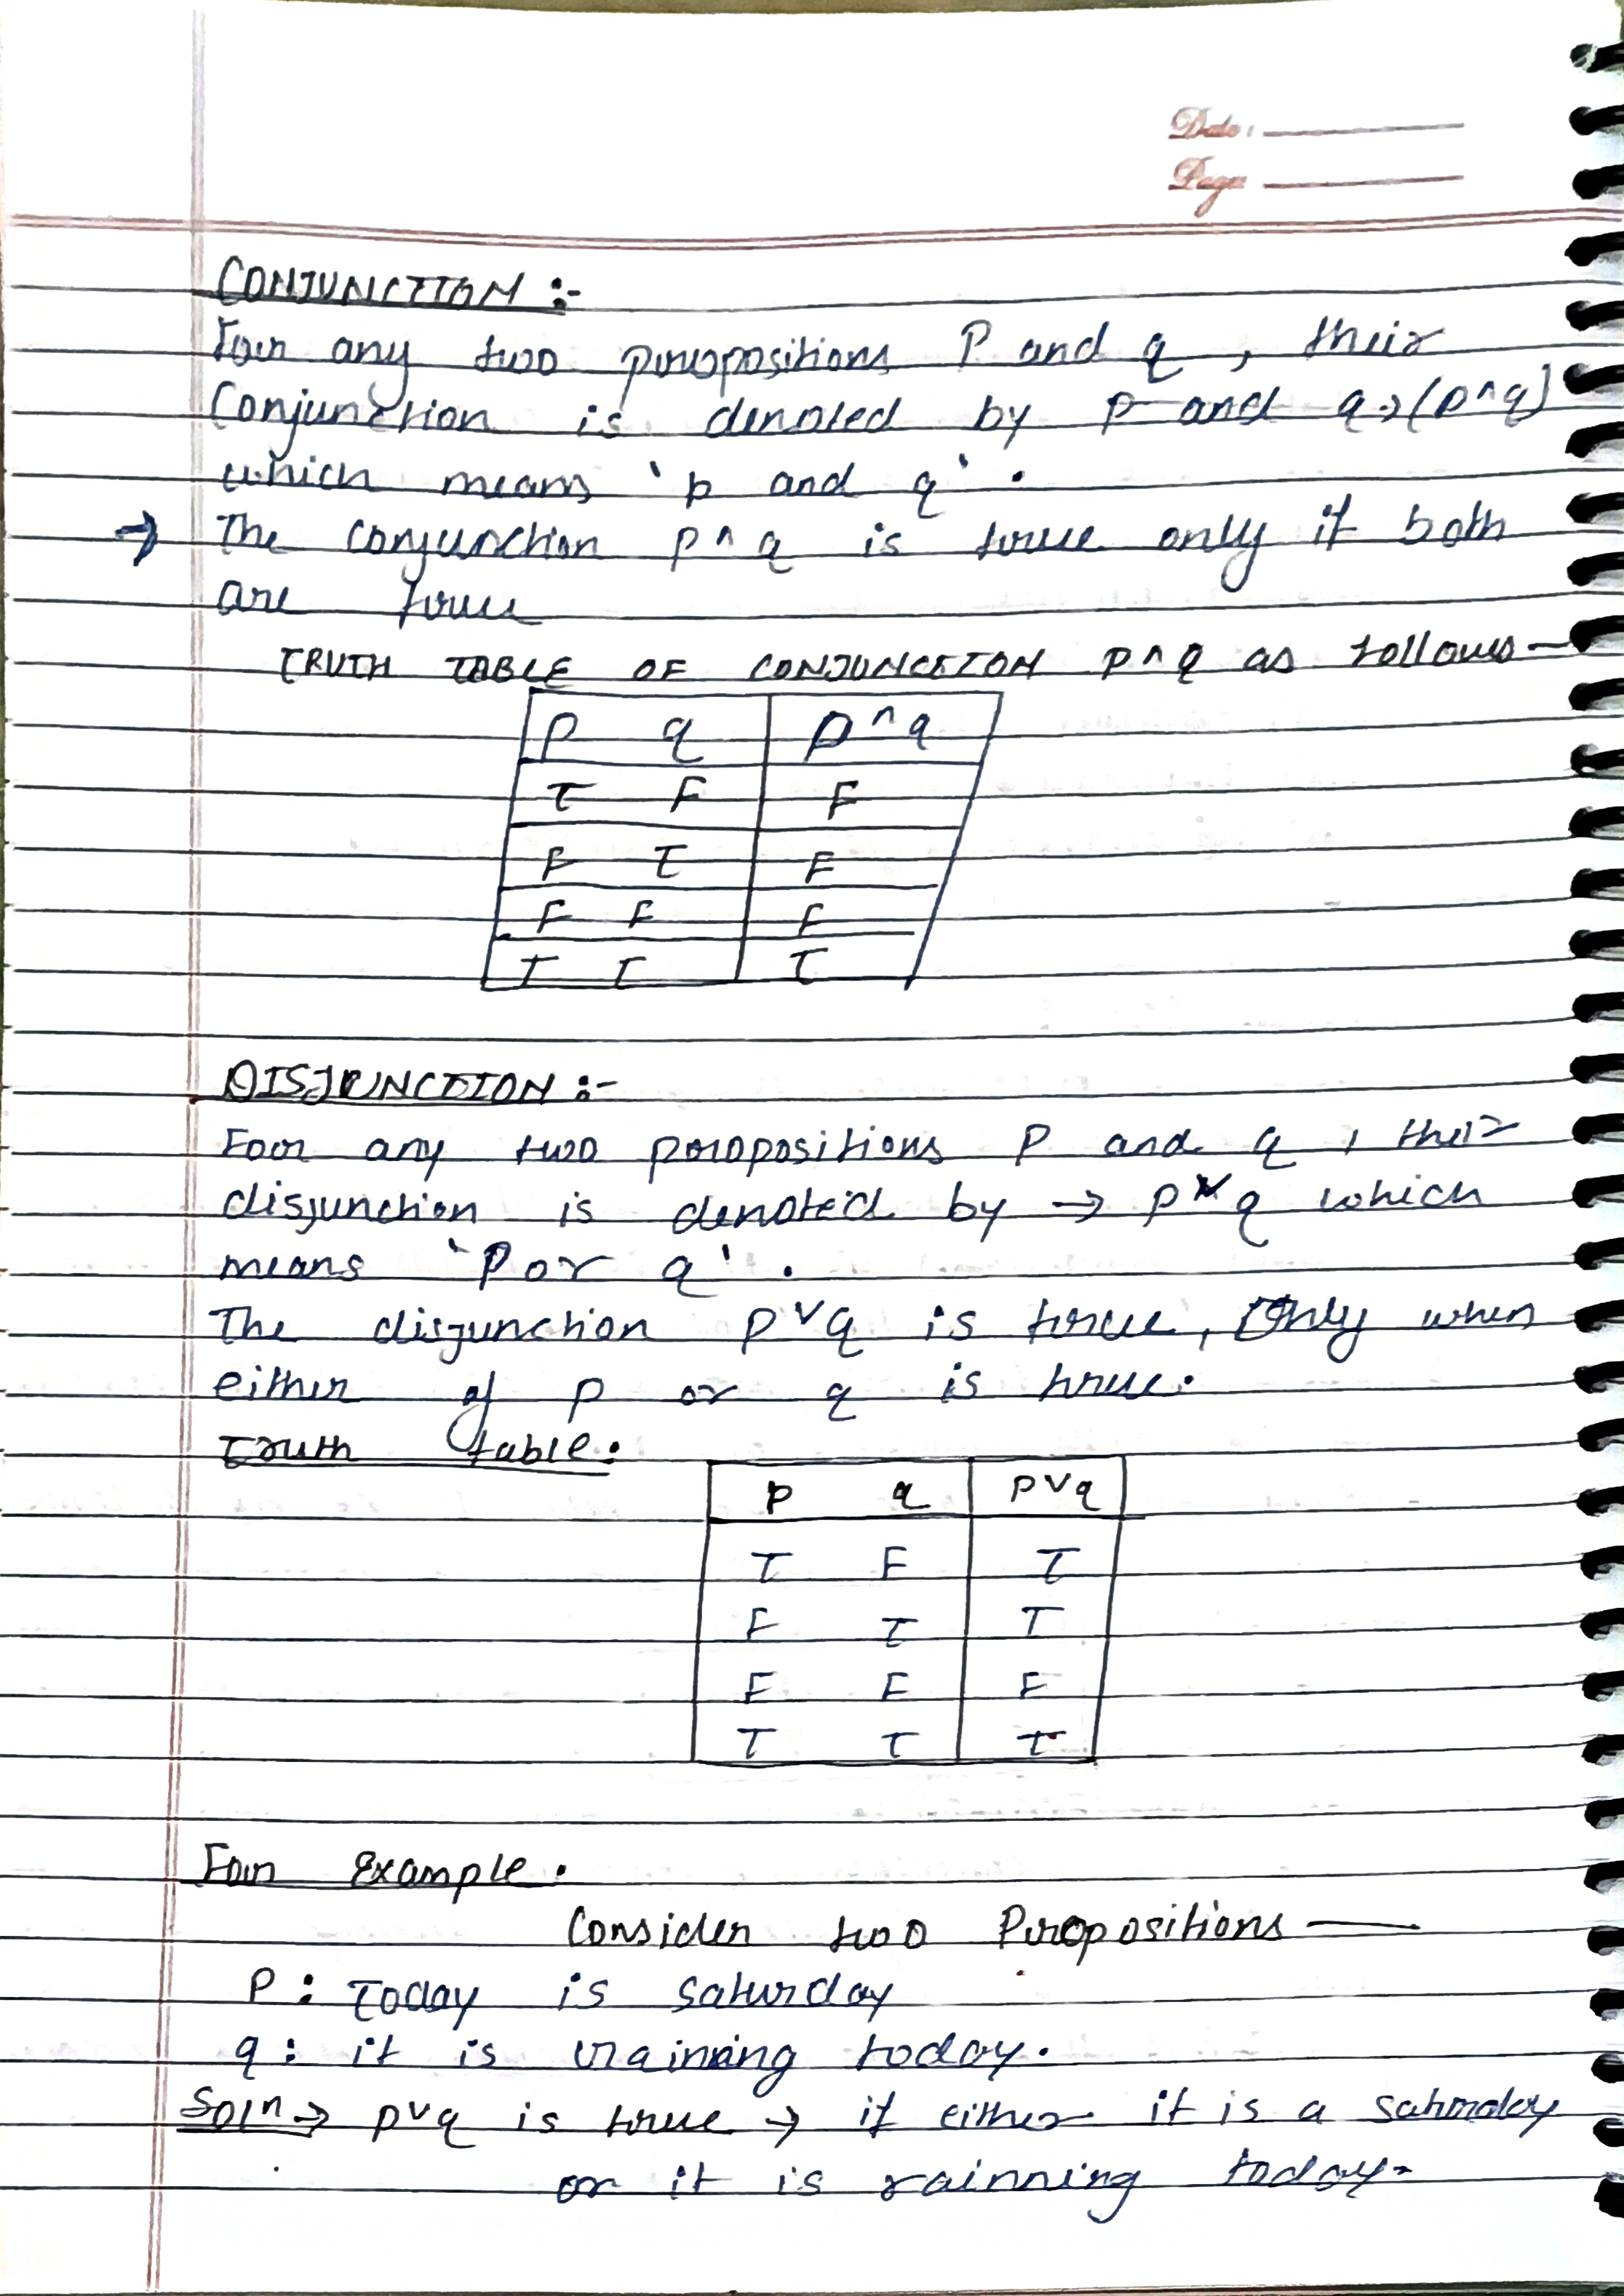 Date:
Page
CONJUNCTION :-
For any two propositions P and q, their
Conjunction is denoted by p and q → (p ^ q)
which means 'p and q'.
→ The conjunction p ^ q is true only if both
are true
TRUTH TABLE OF CONJUNCTION P ^ q as follows —
p q p ^ q
T F F
F T F
F F F
T T T
DISJUNCTION :-
For any two propositions P and q, their
disjunction is denoted by → p v q which
means 'P or q'.
The disjunction p v q is true, Only when
either of p or q is true.
Truth table:
p q p v q
T F T
F T T
F F F
T T T
For Example.
Consider two Propositions —
P : Today is saturday
q : it is raining today.
Soln → p v q is true → if either it is a saturday
or it is rainning today.